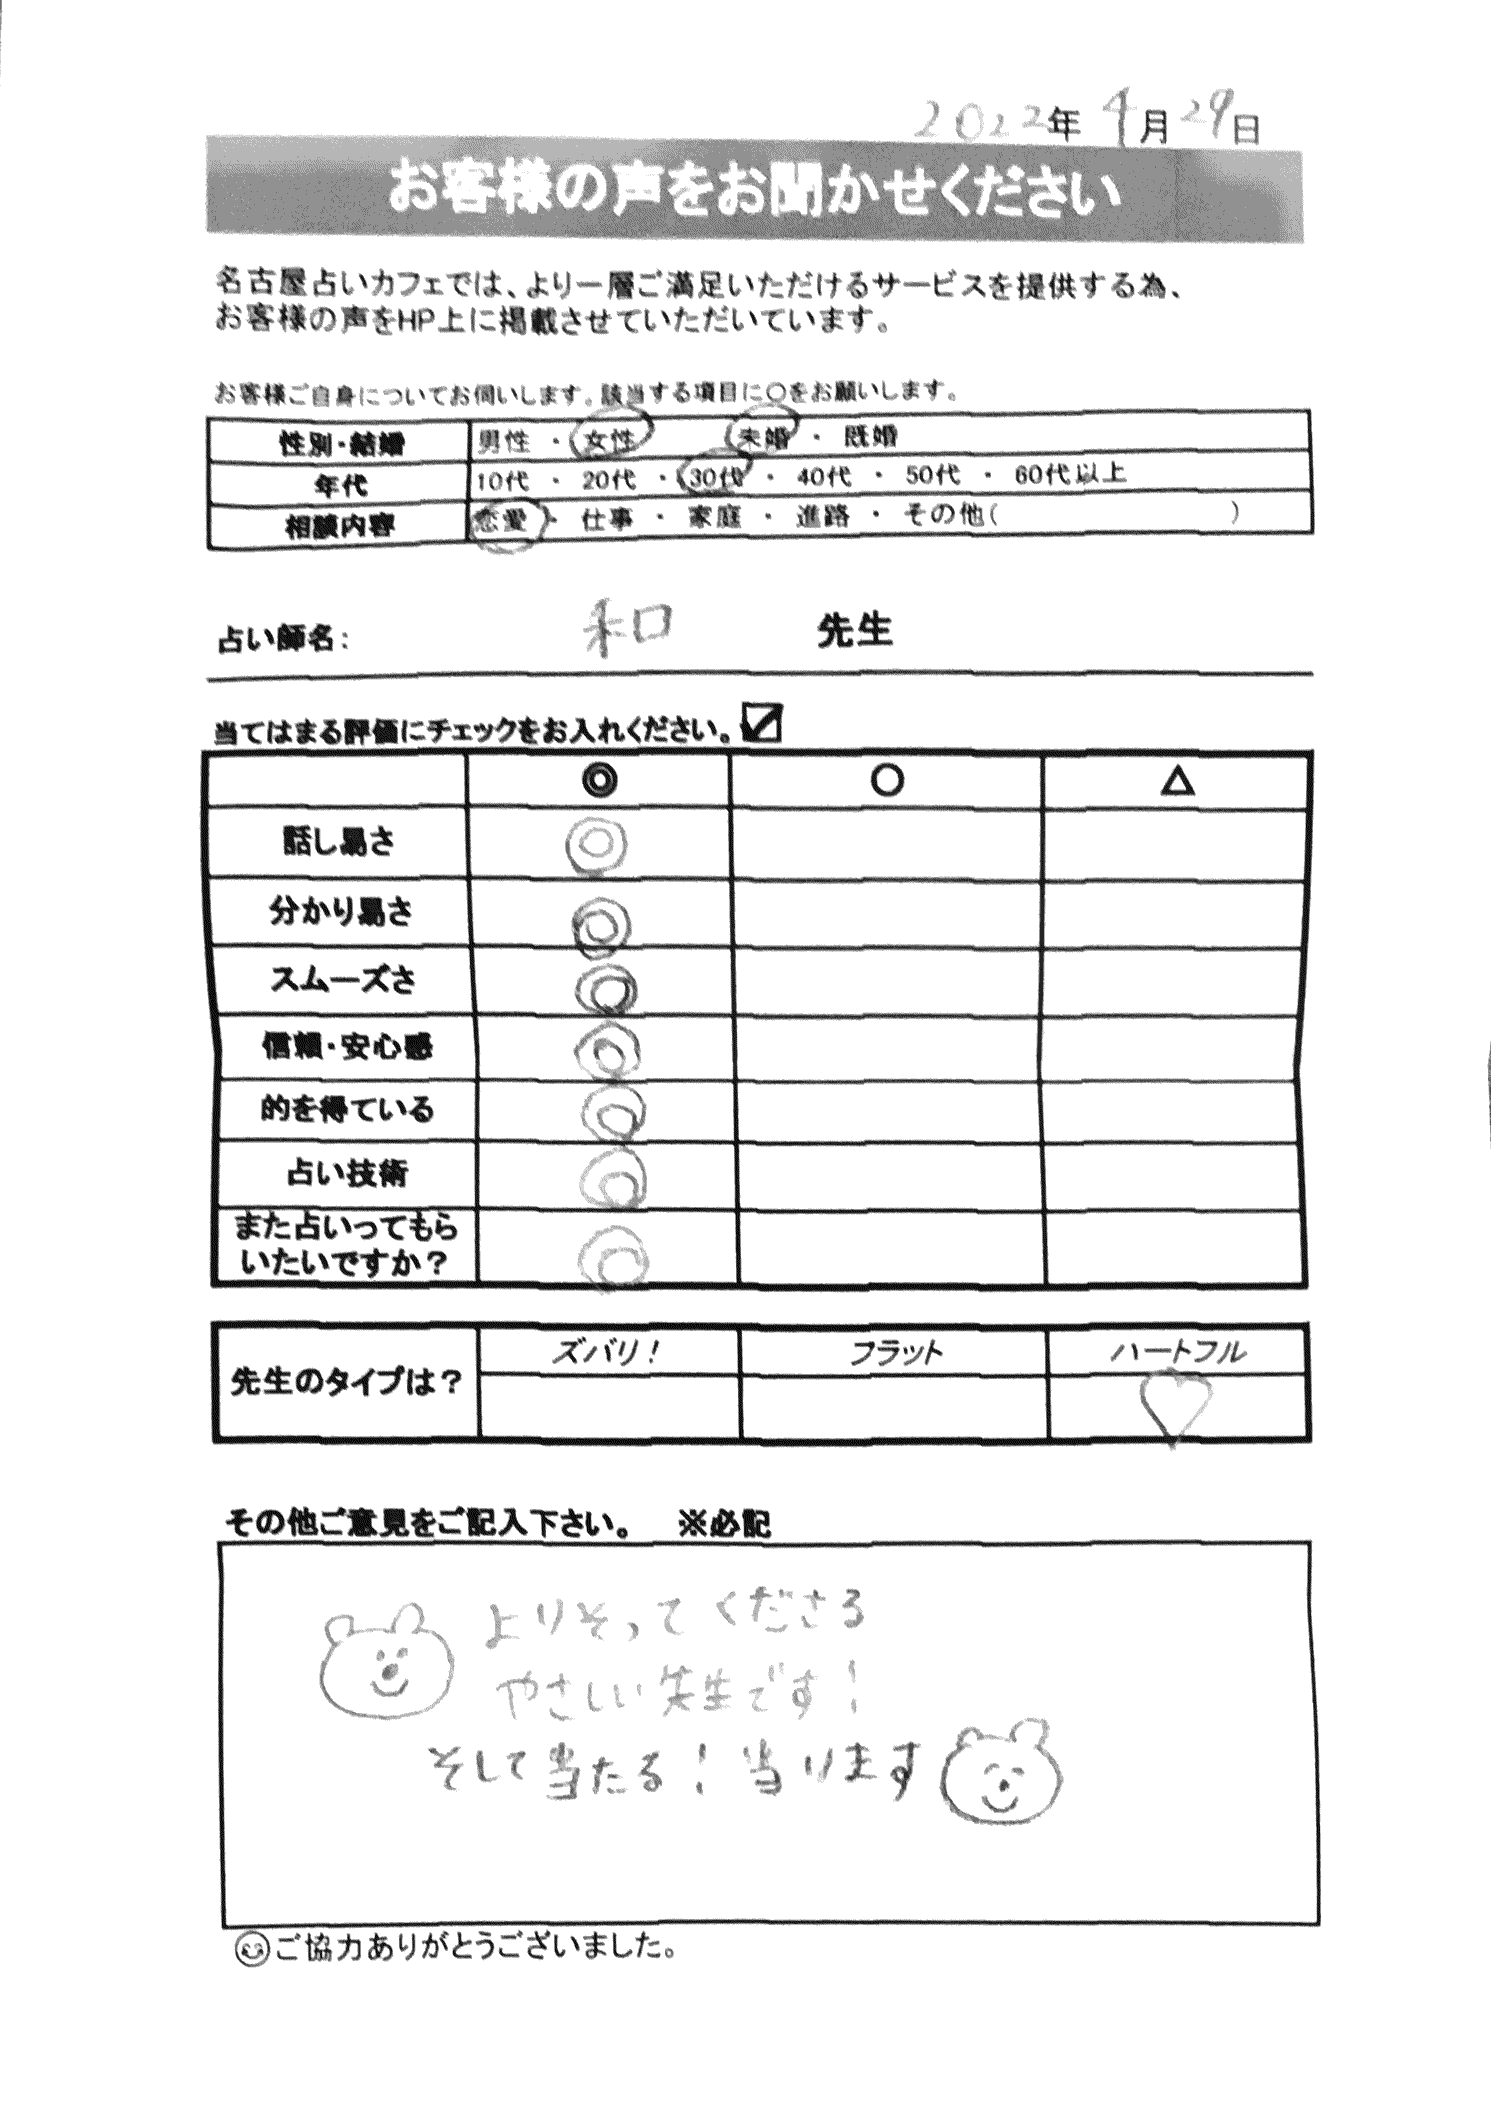 2022年 4月29日
お客様の声をお聞かせください
名古屋占いカフェでは、より一層ご満足いただけるサービスを提供する為、
お客様の声をHP上に掲載させていただいています。
お客様ご自身についてお伺いします。該当する項目に○をお願いします。
性別・結婚 男性 ・ 女性 未婚 ・ 既婚
年代 10代 ・ 20代 ・ 30代 ・ 40代 ・ 50代 ・ 60代以上
相談内容 恋愛 ・ 仕事 ・ 家庭 ・ 進路 ・ その他( )
占い師名: 和 先生
当てはまる評価にチェックをお入れください。☑
◎ ○ △
話し易さ ◎
分かり易さ ◎
スムーズさ ◎
信頼・安心感 ◎
的を得ている ◎
占い技術 ◎
また占いってもら
いたいですか？ ◎
ズバリ！ フラット ハートフル
先生のタイプは？ ♡
その他ご意見をご記入下さい。 ※必記
よりそってくださる
やさしい先生です！
そして当たる！当ります
ご協力ありがとうございました。